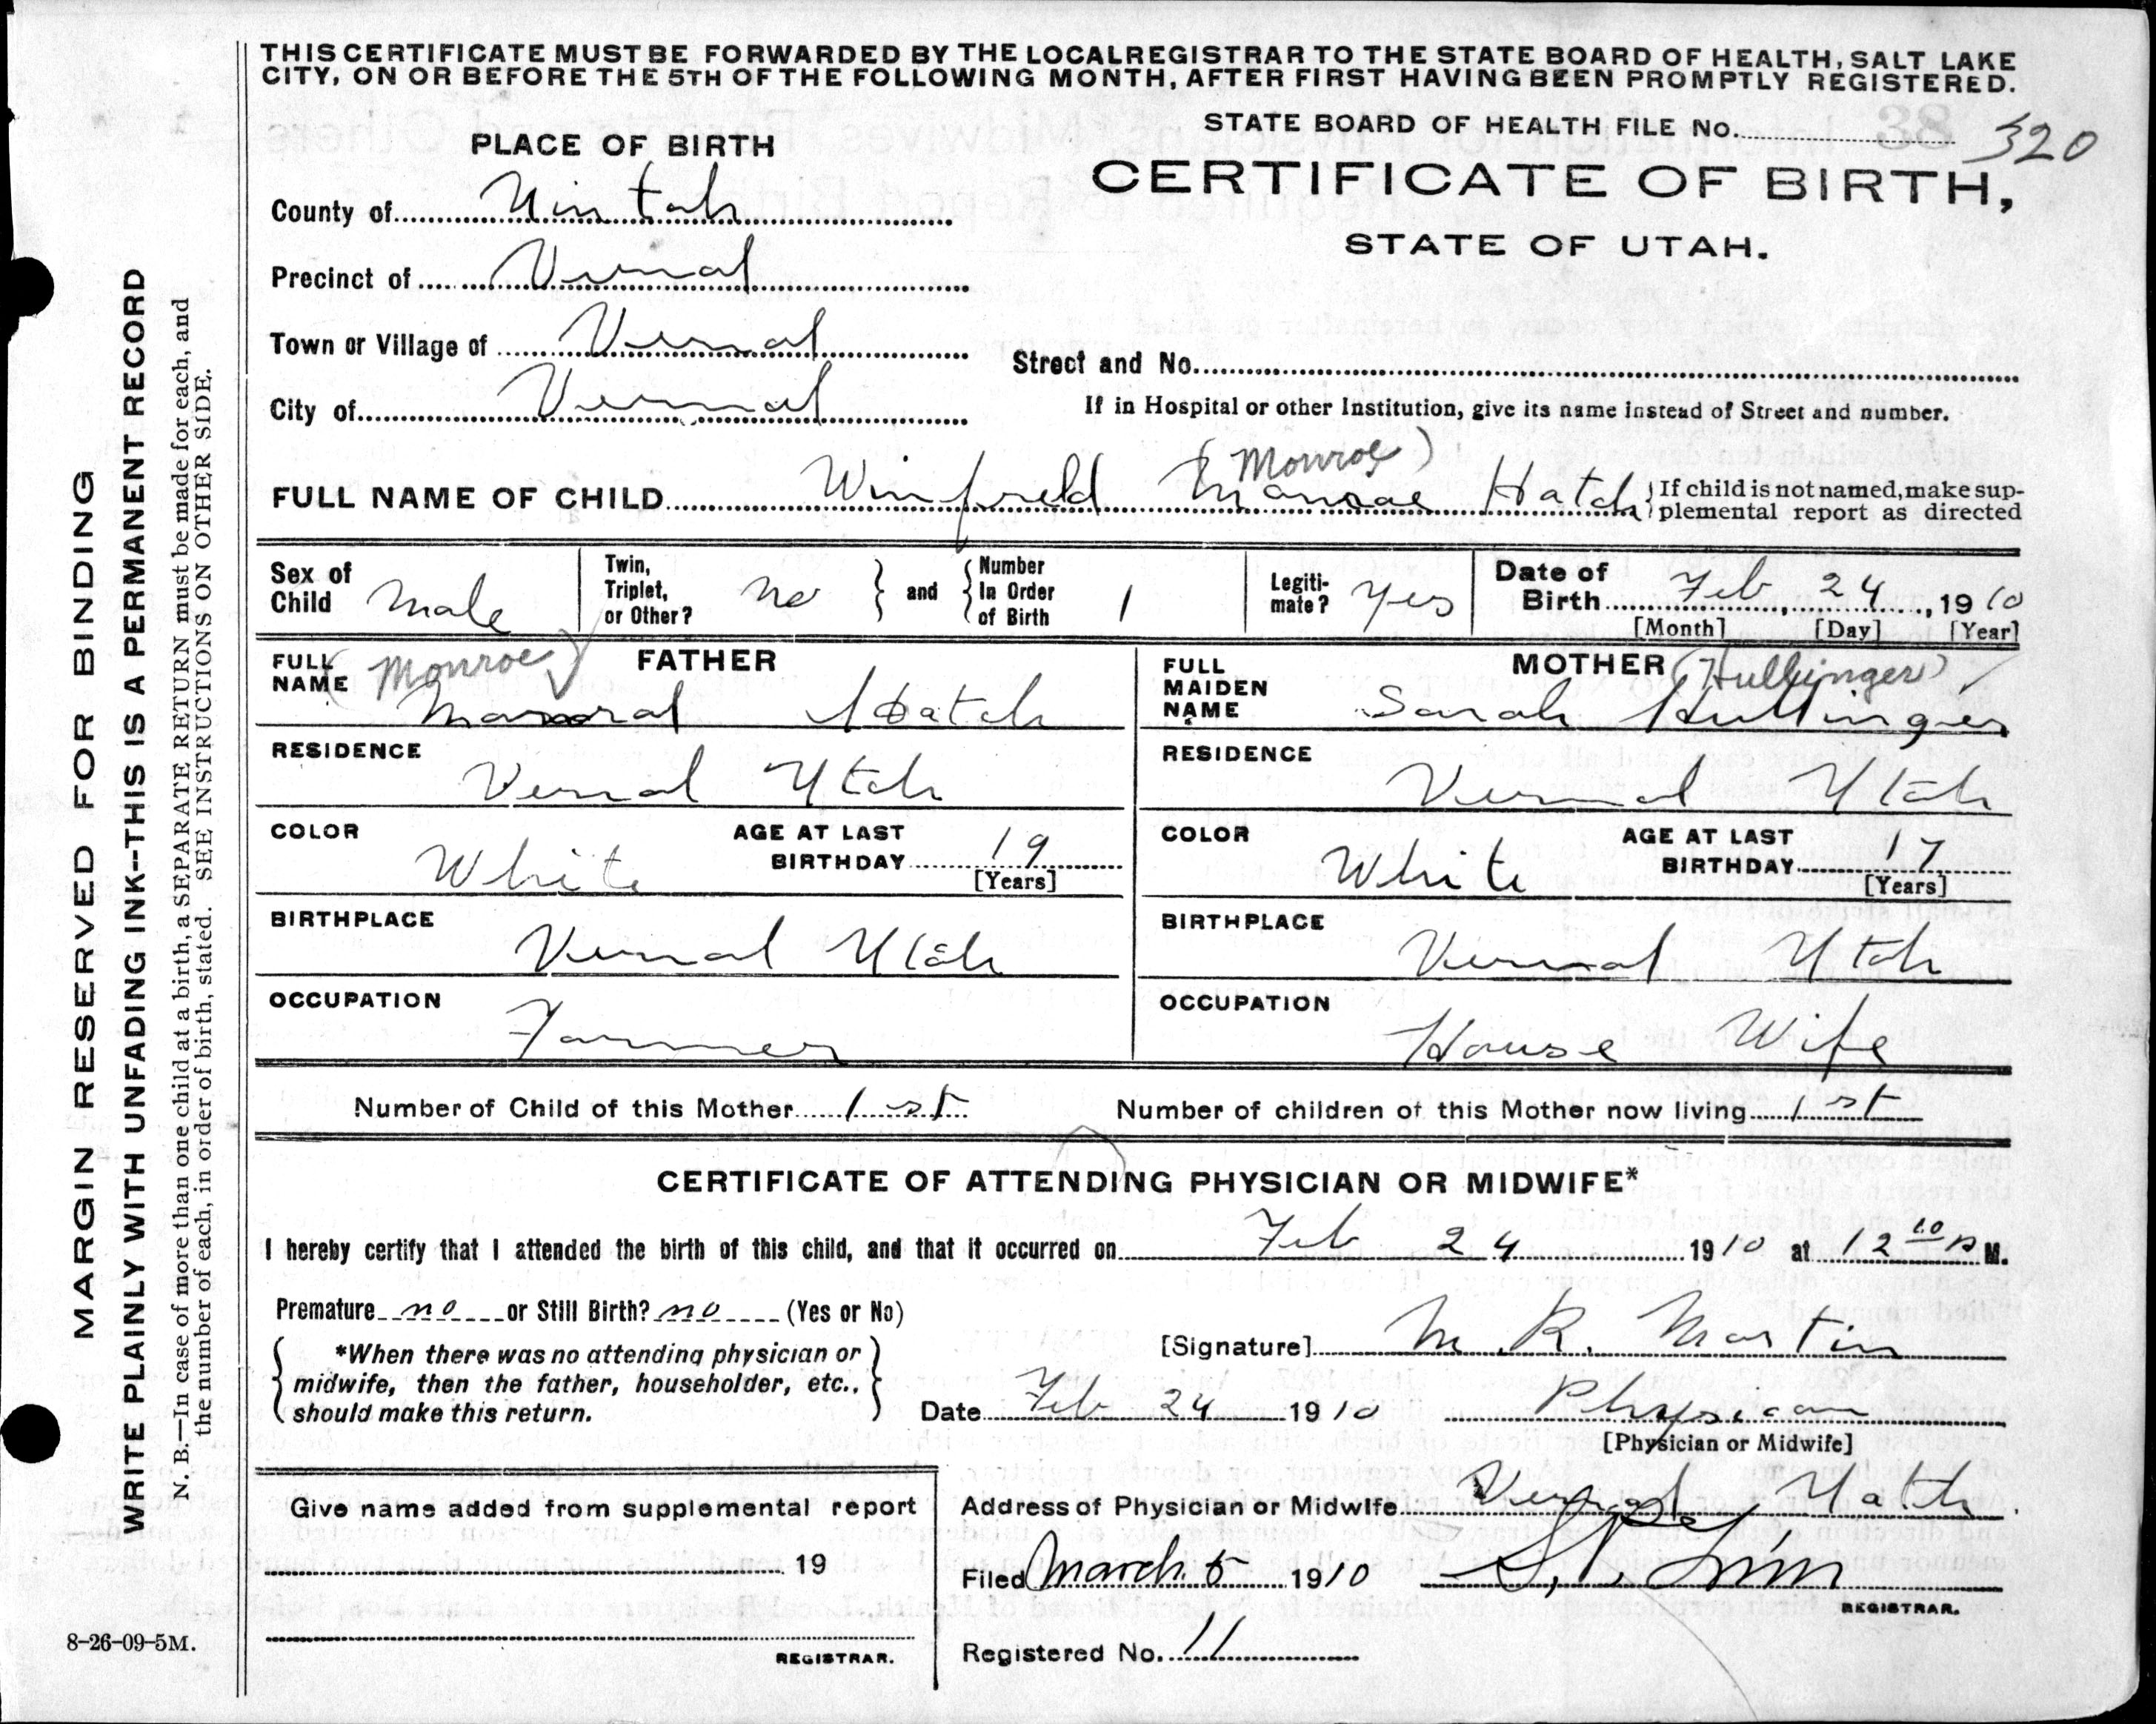 THIS CERTIFICATE MUST BE FORWARDED BY THE LOCAL REGISTRAR TO THE STATE BOARD OF HEALTH, SALT LAKE
CITY, ON OR BEFORE THE 5TH OF THE FOLLOWING MONTH, AFTER FIRST HAVING BEEN PROMPTLY REGISTERED.
STATE BOARD OF HEALTH FILE NO. 38 320
PLACE OF BIRTH
CERTIFICATE OF BIRTH,
STATE OF UTAH.
County of Uintah
Precinct of Vernal
Town or Village of Vernal
Street and No.
City of Vernal
If in Hospital or other Institution, give its name instead of Street and number.
(Monroe)
FULL NAME OF CHILD Winfield Manroe Hatch
If child is not named, make sup-
plemental report as directed
Sex of Child Male
Twin, Triplet, or Other? No
and
Number In Order of Birth 1
Legiti-mate? Yes
Date of Birth Feb 24, 1910
[Month] [Day] [Year]
FATHER
FULL NAME (Monroe)
Hatch
MOTHER
FULL MAIDEN NAME (Hullinger)
Sarah Hullinger
RESIDENCE Vernal Utah
RESIDENCE Vernal Utah
COLOR White
AGE AT LAST BIRTHDAY 19 [Years]
COLOR White
AGE AT LAST BIRTHDAY 17 [Years]
BIRTHPLACE Vernal Utah
BIRTHPLACE Vernal Utah
OCCUPATION Farmer
OCCUPATION House Wife
Number of Child of this Mother 1st
Number of children of this Mother now living 1st
CERTIFICATE OF ATTENDING PHYSICIAN OR MIDWIFE*
I hereby certify that I attended the birth of this child, and that it occurred on Feb 24 1910 at 12 10 P M.
Premature no or Still Birth? no (Yes or No)
*When there was no attending physician or
midwife, then the father, householder, etc.,
should make this return.
[Signature] M. R. Martin
Date Feb 24 1910
Physican
[Physician or Midwife]
Give name added from supplemental report
19
REGISTRAR.
Address of Physician or Midwife Vernal Utah.
Filed March 5 1910
REGISTRAR.
Registered No. 11
MARGIN RESERVED FOR BINDING
WRITE PLAINLY WITH UNFADING INK--THIS IS A PERMANENT RECORD
N. B.—In case of more than one child at a birth, a SEPARATE RETURN must be made for each, and
the number of each, in order of birth, stated. SEE INSTRUCTIONS ON OTHER SIDE.
8-26-09-5M.